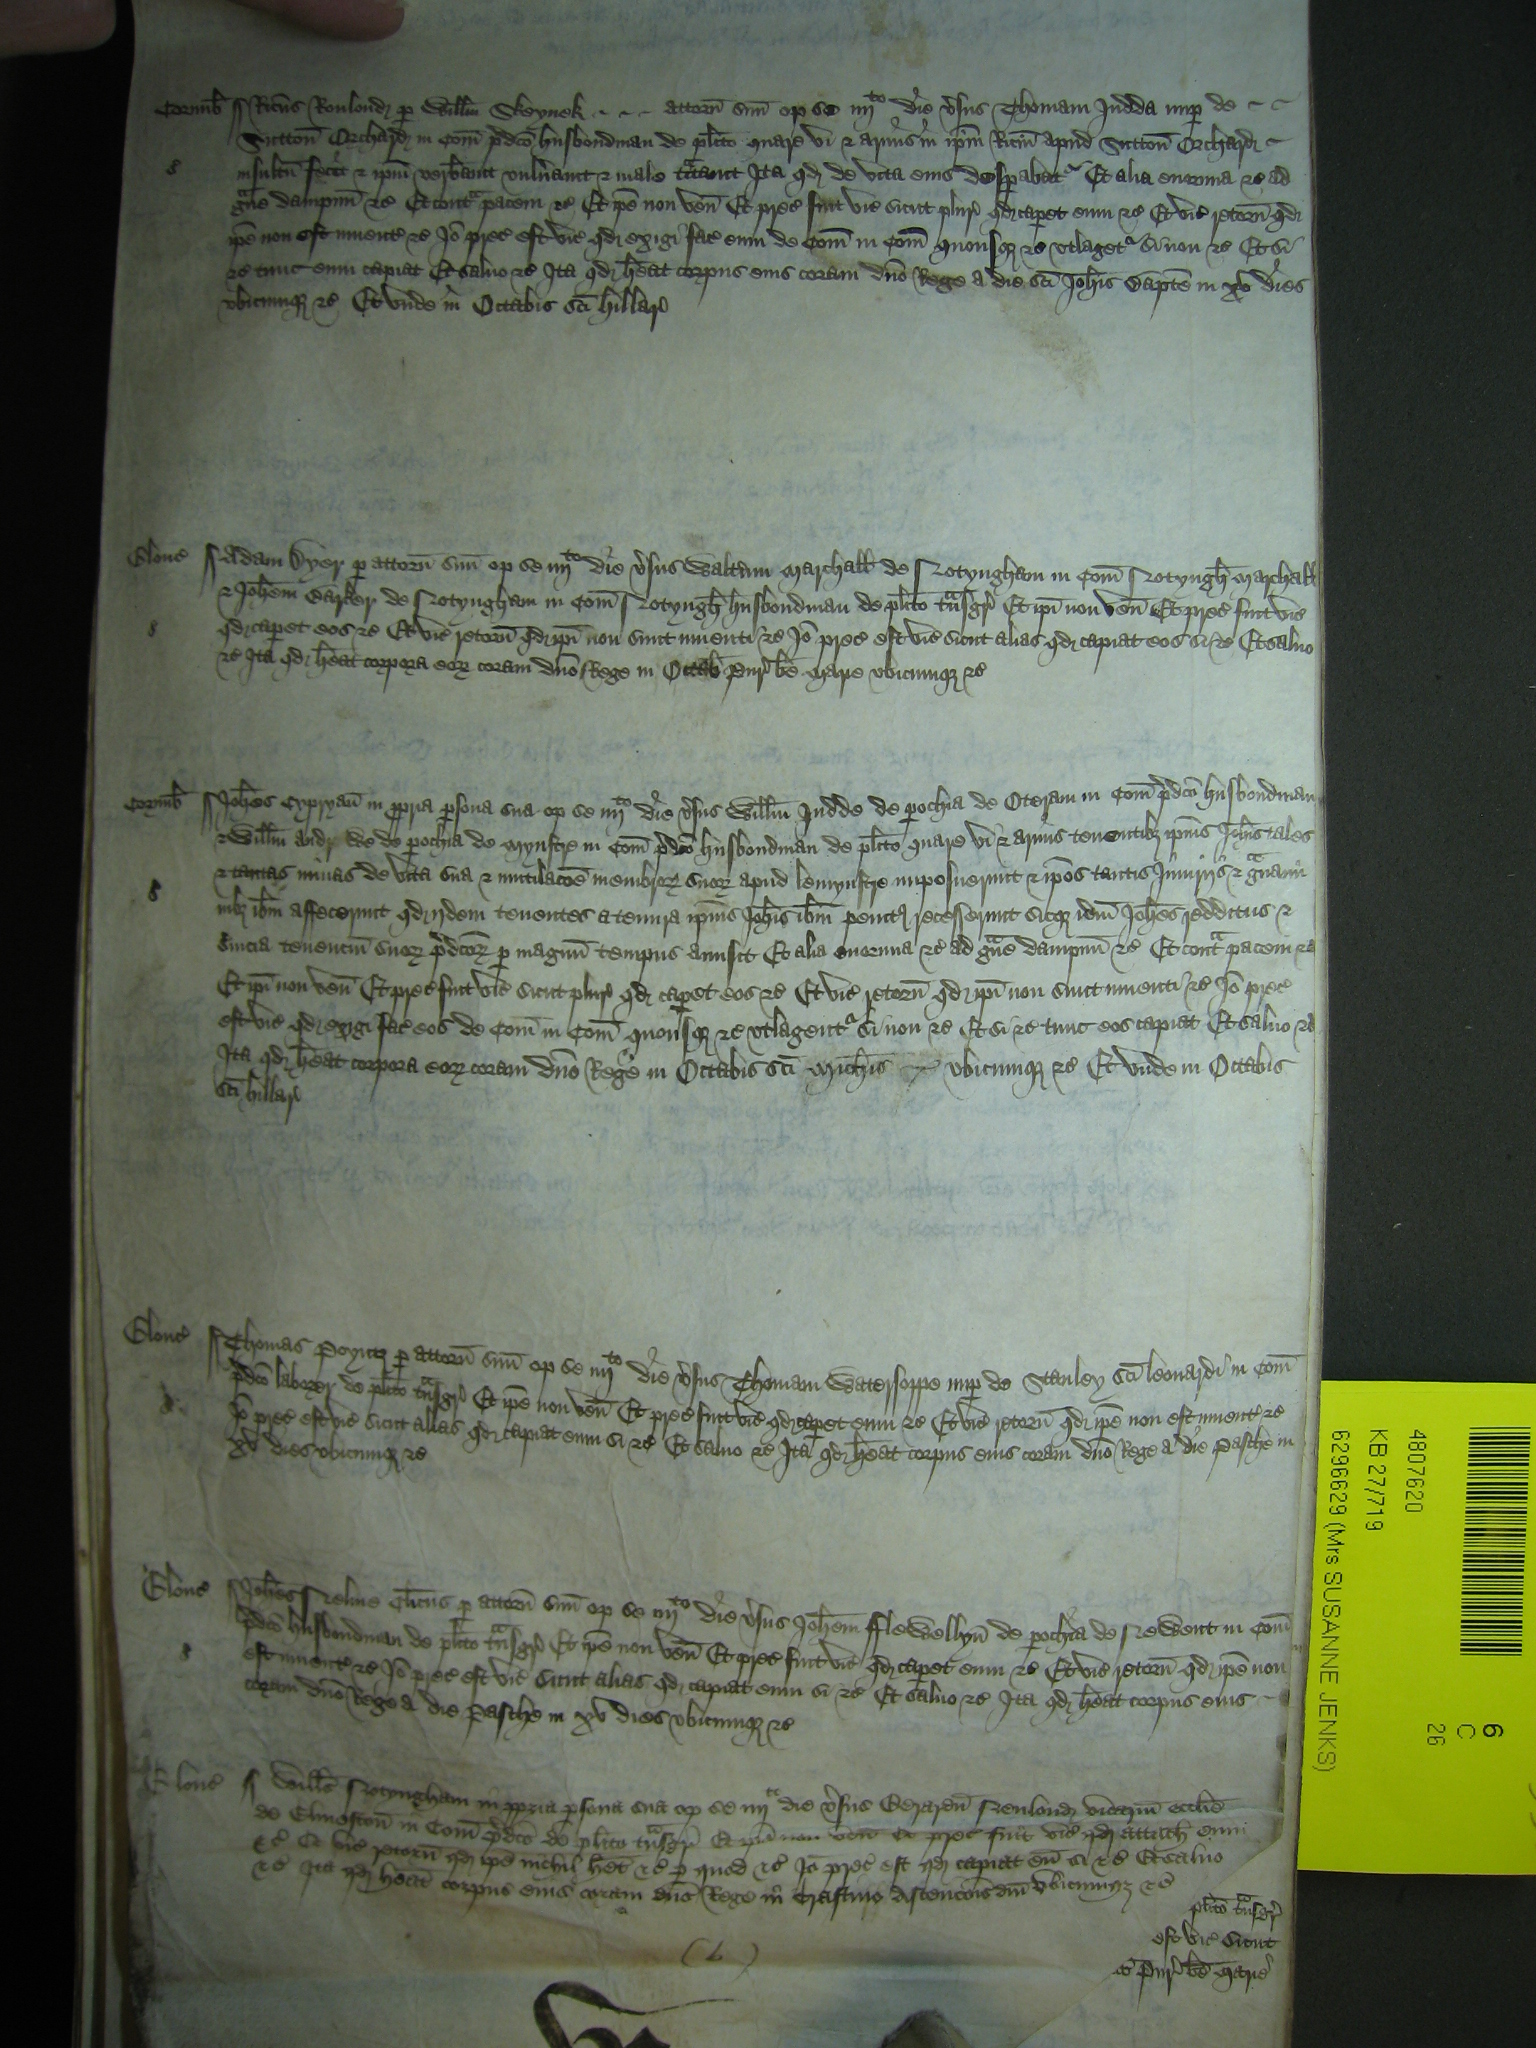 Cornub Ricūs Roulond p Willm Skeynek attorn suū op se iiijto die vsus Thomam Judda nup de
Sutton Orchard in Com pdco husbondman de plito quare vi & armis in ipm Ricm apud Sutton Orchard
insultu fecit & ipm verbavit vulnavit & male tctavit Ita qd de vita eius despabatr Et alia enormia &c ad
gve dampnu &c Et contra pacem &c Et ipe non ven Et prec fuit vic sicut plur qd caperet eum &c Et vic retorn qd
ipe non est invent &c Io prec est vic qd exigi fac eum de Com in Com quousq &c utlaget si non &c Et si
&c tunc eum capiat Et salvo &c Ita qd heat corpus eius coram dno Rege a die sci Johis Bapte in xv dies
ubicumq &c Et unde in Octabis sci hillar
Glouc Adam Dyer p attorn suū op se iiijto die vsus Waltum Marchall de Notyngham in Com Notyngh Marchall
& Johem Barker de Notyngham in Com Notyngh husbondman de plito tnsgr Et ipi non ven Et prec fuit vic
qd caperet eos &c Et vic retorn qd ipi non sunt inventi &c Io prec est vic sicut alias qd capiat eos si &c Et salvo
&c Ita qd heat corpora eor coram dno Rege in Octab Pur be Marie ubicumq &c
Cornub Johes Cypryan in ppria psona sua op se iiijto die vsus Willm Judde de pochia de Oteram in Com pdco husbondman
& Willm de pochia de Mynstre in Com pdco husbondman de plito quare vi & armis tenentib ipius Johis tales
& tantas minas de vita sua & mutilacoe membror suor apud Lemynstre imposuerunt & ipos tantis Iniurijs & gvami
nib ibm affecerunt qd ijdem tenentes a tenura ipius Johis ibm penit recesserunt sicq idm Johes redditus &
svicia tenenciu suor pdcor p magnu tempus amisit Et alia enormia &c ad gve dampnu &c Et contra pacem &c
Et ipi non ven Et prec fuit vic sicut plur qd caperet eos &c Et vic retorn qd ipi non sunt inventi &c Io prec
est vic qd exigi fac eos de Com in Com quousq &c utlagent si non &c Et si &c tunc eos capiat Et salvo &c
Ita qd heat corpora eor coram dno Rege in Octabis sci Michis ubicumq &c Et unde in Octabis
sci hillar
Glouc Thomas Poyntz p attorn suū op se iiijto die vsus Thomam Watersoppe nup de Stanley sci leonardi in Com
pdco laborer de plito tnsgr Et ipe non ven Et prec fuit vic qd caperet eum &c Et vic retorn qd ipe non est invent &c
Io prec est vic sicut alias qd capiat eum si &c Et salvo &c Ita qd heat corpus eius coram dno Rege a die Pasche in
xv dies ubicumq &c
Glouc Johes Nelme Clicus p attorn suū op se iiijto die vsus Johem fflewellyn de pochia de Newent in Com
pdco husbondman de plito tnsgr Et ipe non ven Et prec fuit vic qd caperet eum &c Et vic retorn qd ipe non
est invent &c Io prec est vic sicut alias qd capiat eum si &c Et salvo &c Ita qd heat corpus eius
coram dno Rege a die Pasche in xv dies ubicumq &c
Glouc Wills Notyngham in ppria psona sua op se iiijto die vsus Gerardu Newlond vicariu ecclie
de Elmeston in Com pdco de plito tnsgr Et ipe non ven Et prec fuit vic qd attach eum
&c Et vic retorn qd ipe nichil het &c p quod &c Io prec est qd capiat eu si &c Et salvo
&c Ita qd heat corpus eius coram dno Rege in Crastino Ascencois dni ubicumq &c
plito tnsgr
est vic sicut
Pur be Marie
(b)
4807620
KB 27/719
6296629 (Mrs SUSANNE JENKS)
6
C
26